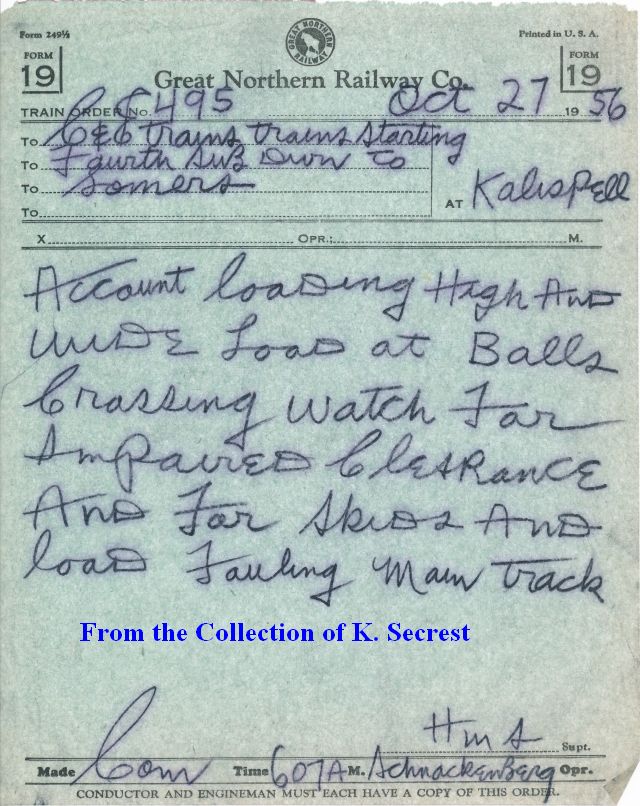 Form 249½
Printed in U. S. A.
FORM 19
GREAT NORTHERN RAILWAY
FORM 19
Great Northern Railway Co.
TRAIN ORDER No. 495 Oct 27 1956
To C&E trains trains starting
To Fourth Sub Down to
To Somers
To
AT Kalispell
X OPR.: M.
Account loading High And
Wide Load at Balls
Crossing Watch For
Impaired Clearance
And For Skids And
load Fouling Main track
From the Collection of K. Secrest
H M S Supt.
Made Com Time 607 A M. Schnackenberg Opr.
CONDUCTOR AND ENGINEMAN MUST EACH HAVE A COPY OF THIS ORDER.